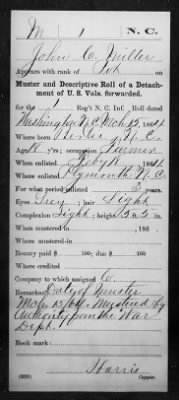 M | 1 | N. C.
John C. Miller
Appears with rank of Pvt on
Muster and Descriptive Roll of a Detach-
ment of U. S. Vols. forwarded.
for the 1 Reg't N. C. Inf. Roll dated
Washington, N.C. Mch 12, 1864
Where born Bertie, N.C.
Age 18 y'rs; occupation Farmer
When enlisted Feby 8, 1864
Where enlisted Plymouth N.C.
For what period enlisted 3 years.
Eyes Grey; hair Light
Complexion Light; height 5 ft. 5 in.
When mustered in , 186 .
Where mustered in
Bounty paid $ 100; due $ 100
Where credited
Company to which assigned C
Remarks: Date of muster
Mch 12/64. Mustered by
authority from the War
Dept.
Book mark:
Harris
Copyist.